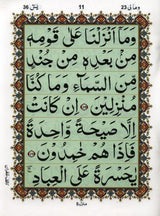 یٰسٓ 36
11
ومالی 23
وَمَآ اَنْزَلْنَا عَلٰى قَوْمِهٖ
مِنْۢ بَعْدِهٖ مِنْ جُنْدٍ
مِّنَ السَّمَآءِ وَمَا كُنَّا
مُنْزِلِيْنَ ۝ اِنْ كَانَتْ
اِلَّا صَيْحَةً وَّاحِدَةً
فَاِذَا هُمْ خٰمِدُوْنَ ۝
يٰحَسْرَةً عَلَى الْعِبَادِ